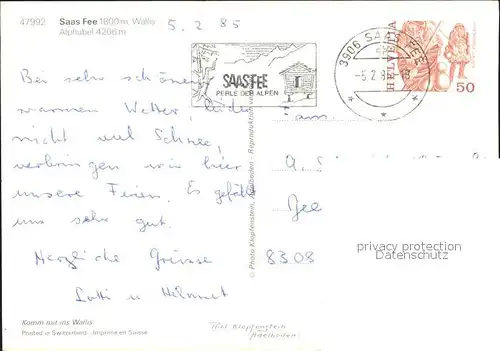 47992 Saas Fee 1800 m, Wallis
Alphubel 4206 m
5. 2. 85
SAAS FEE
PERLE DER ALPEN
3906 SAAS FEE
-5.2.8
HELVETIA
50
Bei sehr schönem
warmen Wetter, leider
nicht viel Schnee,
verbringen wir hier
unsere Ferien. Es gefällt
uns sehr gut.
Herzliche Grüsse
Lotti u Helmut
Fam.
8308
privacy protection
Datenschutz
© Photo Klopfenstein, Adelboden
Komm mit ins Wallis
Printed in Switzerland - Imprimé en Suisse
Klopfenstein
Adelboden